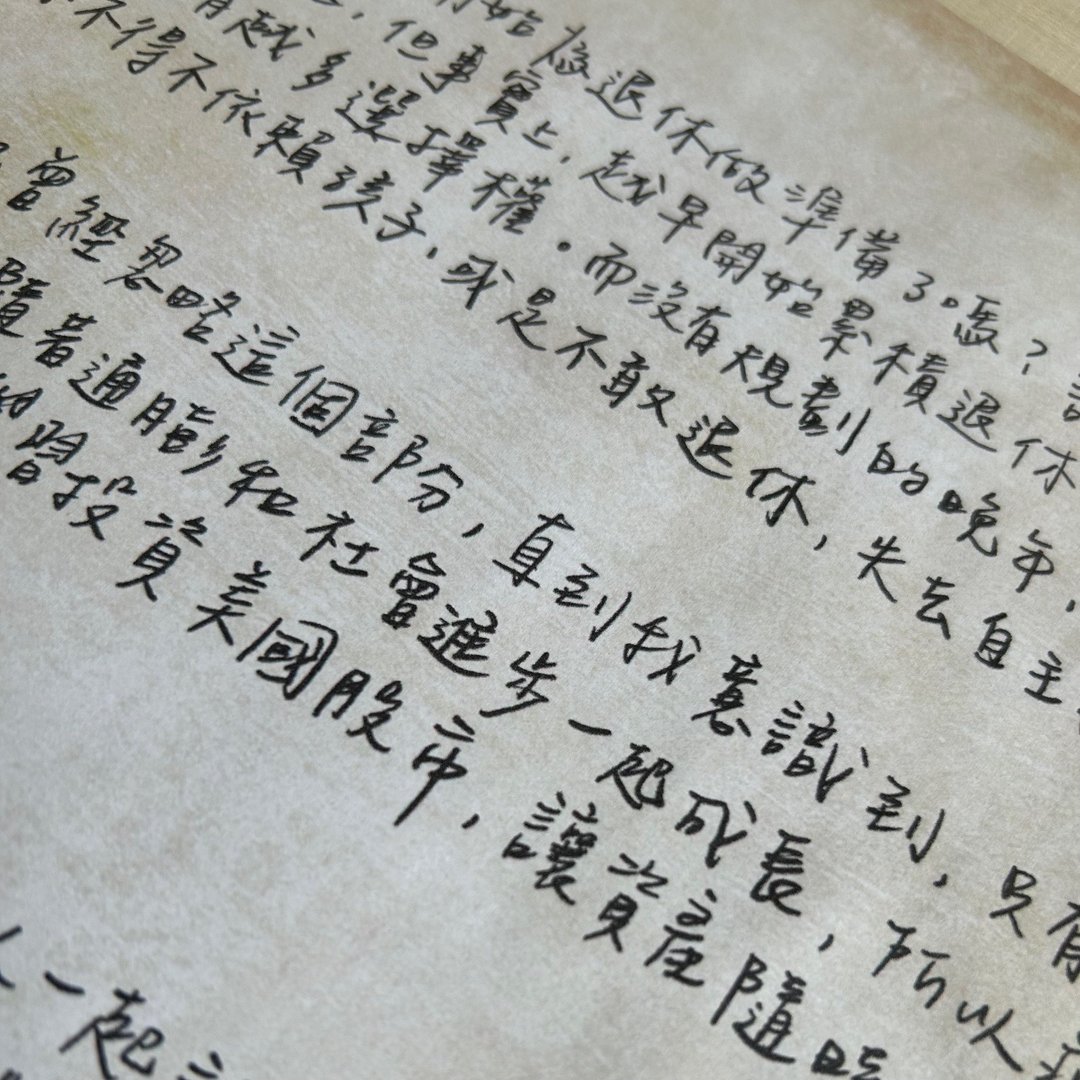 開始為退休做準備了嗎？
，但事實上，越早開始累積退休
有越多選擇權。而沒有規劃的晚年，
不得不依賴孩子，或是不敢退休，失去自主
曾經忽略這個部分，直到我意識到，只有
隨著通膨和社會進步一起成長，所以
習投資美國股市，讓資產隨時
一起